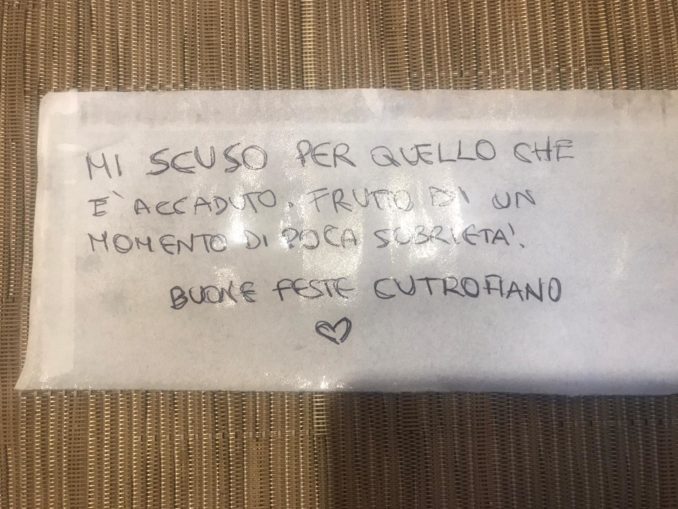 MI SCUSO PER QUELLO CHE
E' ACCADUTO. FRUTTO DI UN
MOMENTO DI POCA SOBRIETA'.
BUONE FESTE CUTROFIANO